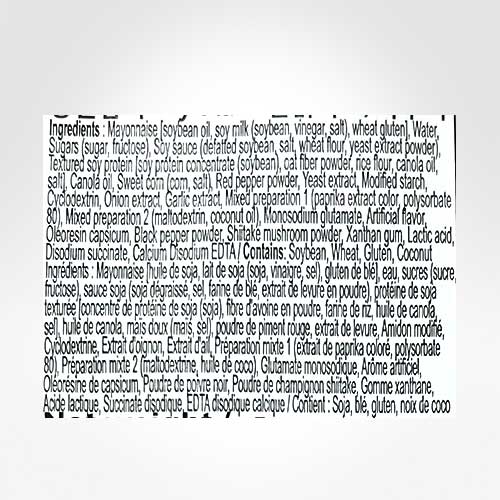 Ingredients : Mayonnaise [soybean oil, soy milk (soybean, vinegar, salt), wheat gluten], Water,
Sugars (sugar, fructose), Soy sauce (defatted soybean, salt, wheat flour, yeast extract powder),
Textured soy protein [soy protein concentrate (soybean), oat fiber powder, rice flour, canola oil,
salt], Canola oil, Sweet corn (corn, salt), Red pepper powder, Yeast extract, Modified starch,
Cyclodextrin, Onion extract, Garlic extract, Mixed preparation 1 (paprika extract color, polysorbate
80), Mixed preparation 2 (maltodextrin, coconut oil), Monosodium glutamate, Artificial flavor,
Oleoresin capsicum, Black pepper powder, Shiitake mushroom powder, Xanthan gum, Lactic acid,
Disodium succinate, Calcium Disodium EDTA / Contains: Soybean, Wheat, Gluten, Coconut
Ingrédients : Mayonnaise [huile de soja, lait de soja (soja, vinaigre, sel), gluten de blé], eau, sucres (sucre,
fructose), sauce soja (soja dégraissé, sel, farine de blé, extrait de levure en poudre), protéine de soja
texturée [concentré de protéine de soja (soja), fibre d'avoine en poudre, farine de riz, huile de canola,
sel], huile de canola, maïs doux (maïs, sel), poudre de piment rouge, extrait de levure, Amidon modifié,
Cyclodextrine, Extrait d'oignon, Extrait d'ail, Préparation mixte 1 (extrait de paprika coloré, polysorbate
80), Préparation mixte 2 (maltodextrine, huile de coco), Glutamate monosodique, Arôme artificiel,
Oléorésine de capsicum, Poudre de poivre noir, Poudre de champignon shiitake, Gomme xanthane,
Acide lactique, Succinate disodique, EDTA disodique calcique / Contient : Soja, blé, gluten, noix de coco